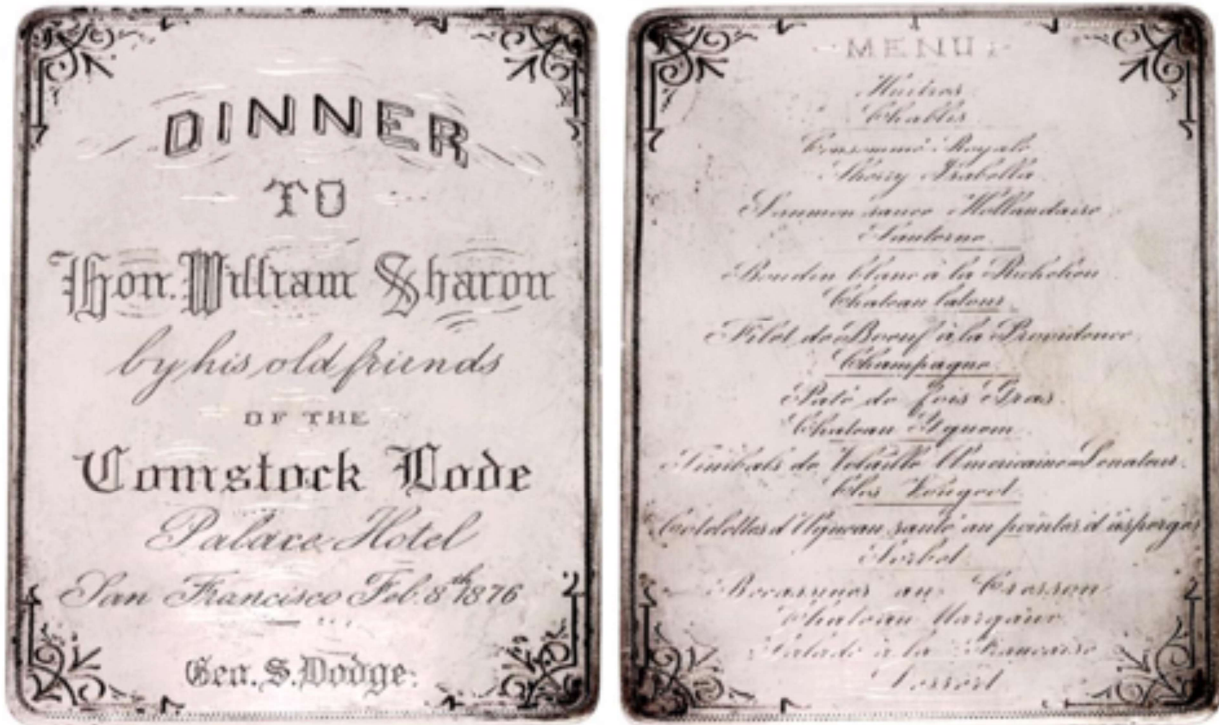 DINNER
TO
Hon. William Sharon
by his old friends
OF THE
Comstock Lode
Palace Hotel
San Francisco Feb. 8th 1876
Geo. S. Dodge.
MENU
Huitres
Chablis
Consommé Royale
Sherry Isabella
Saumon sauce Hollandaise
Sauterne
Boudin blanc à la Richelieu
Chateau Latour
Filet de Boeuf à la Providence
Champagne
Paté de fois Gras
Chateau Yquem
Timbals de Volaille Americaine Senateur
Clos Vougeot
Cotelettes d'Agneau sauté au pointes d'asperges
Sorbet
Becassines au Cresson
Chateau Margaux
Salade à la Francaise
Dessert